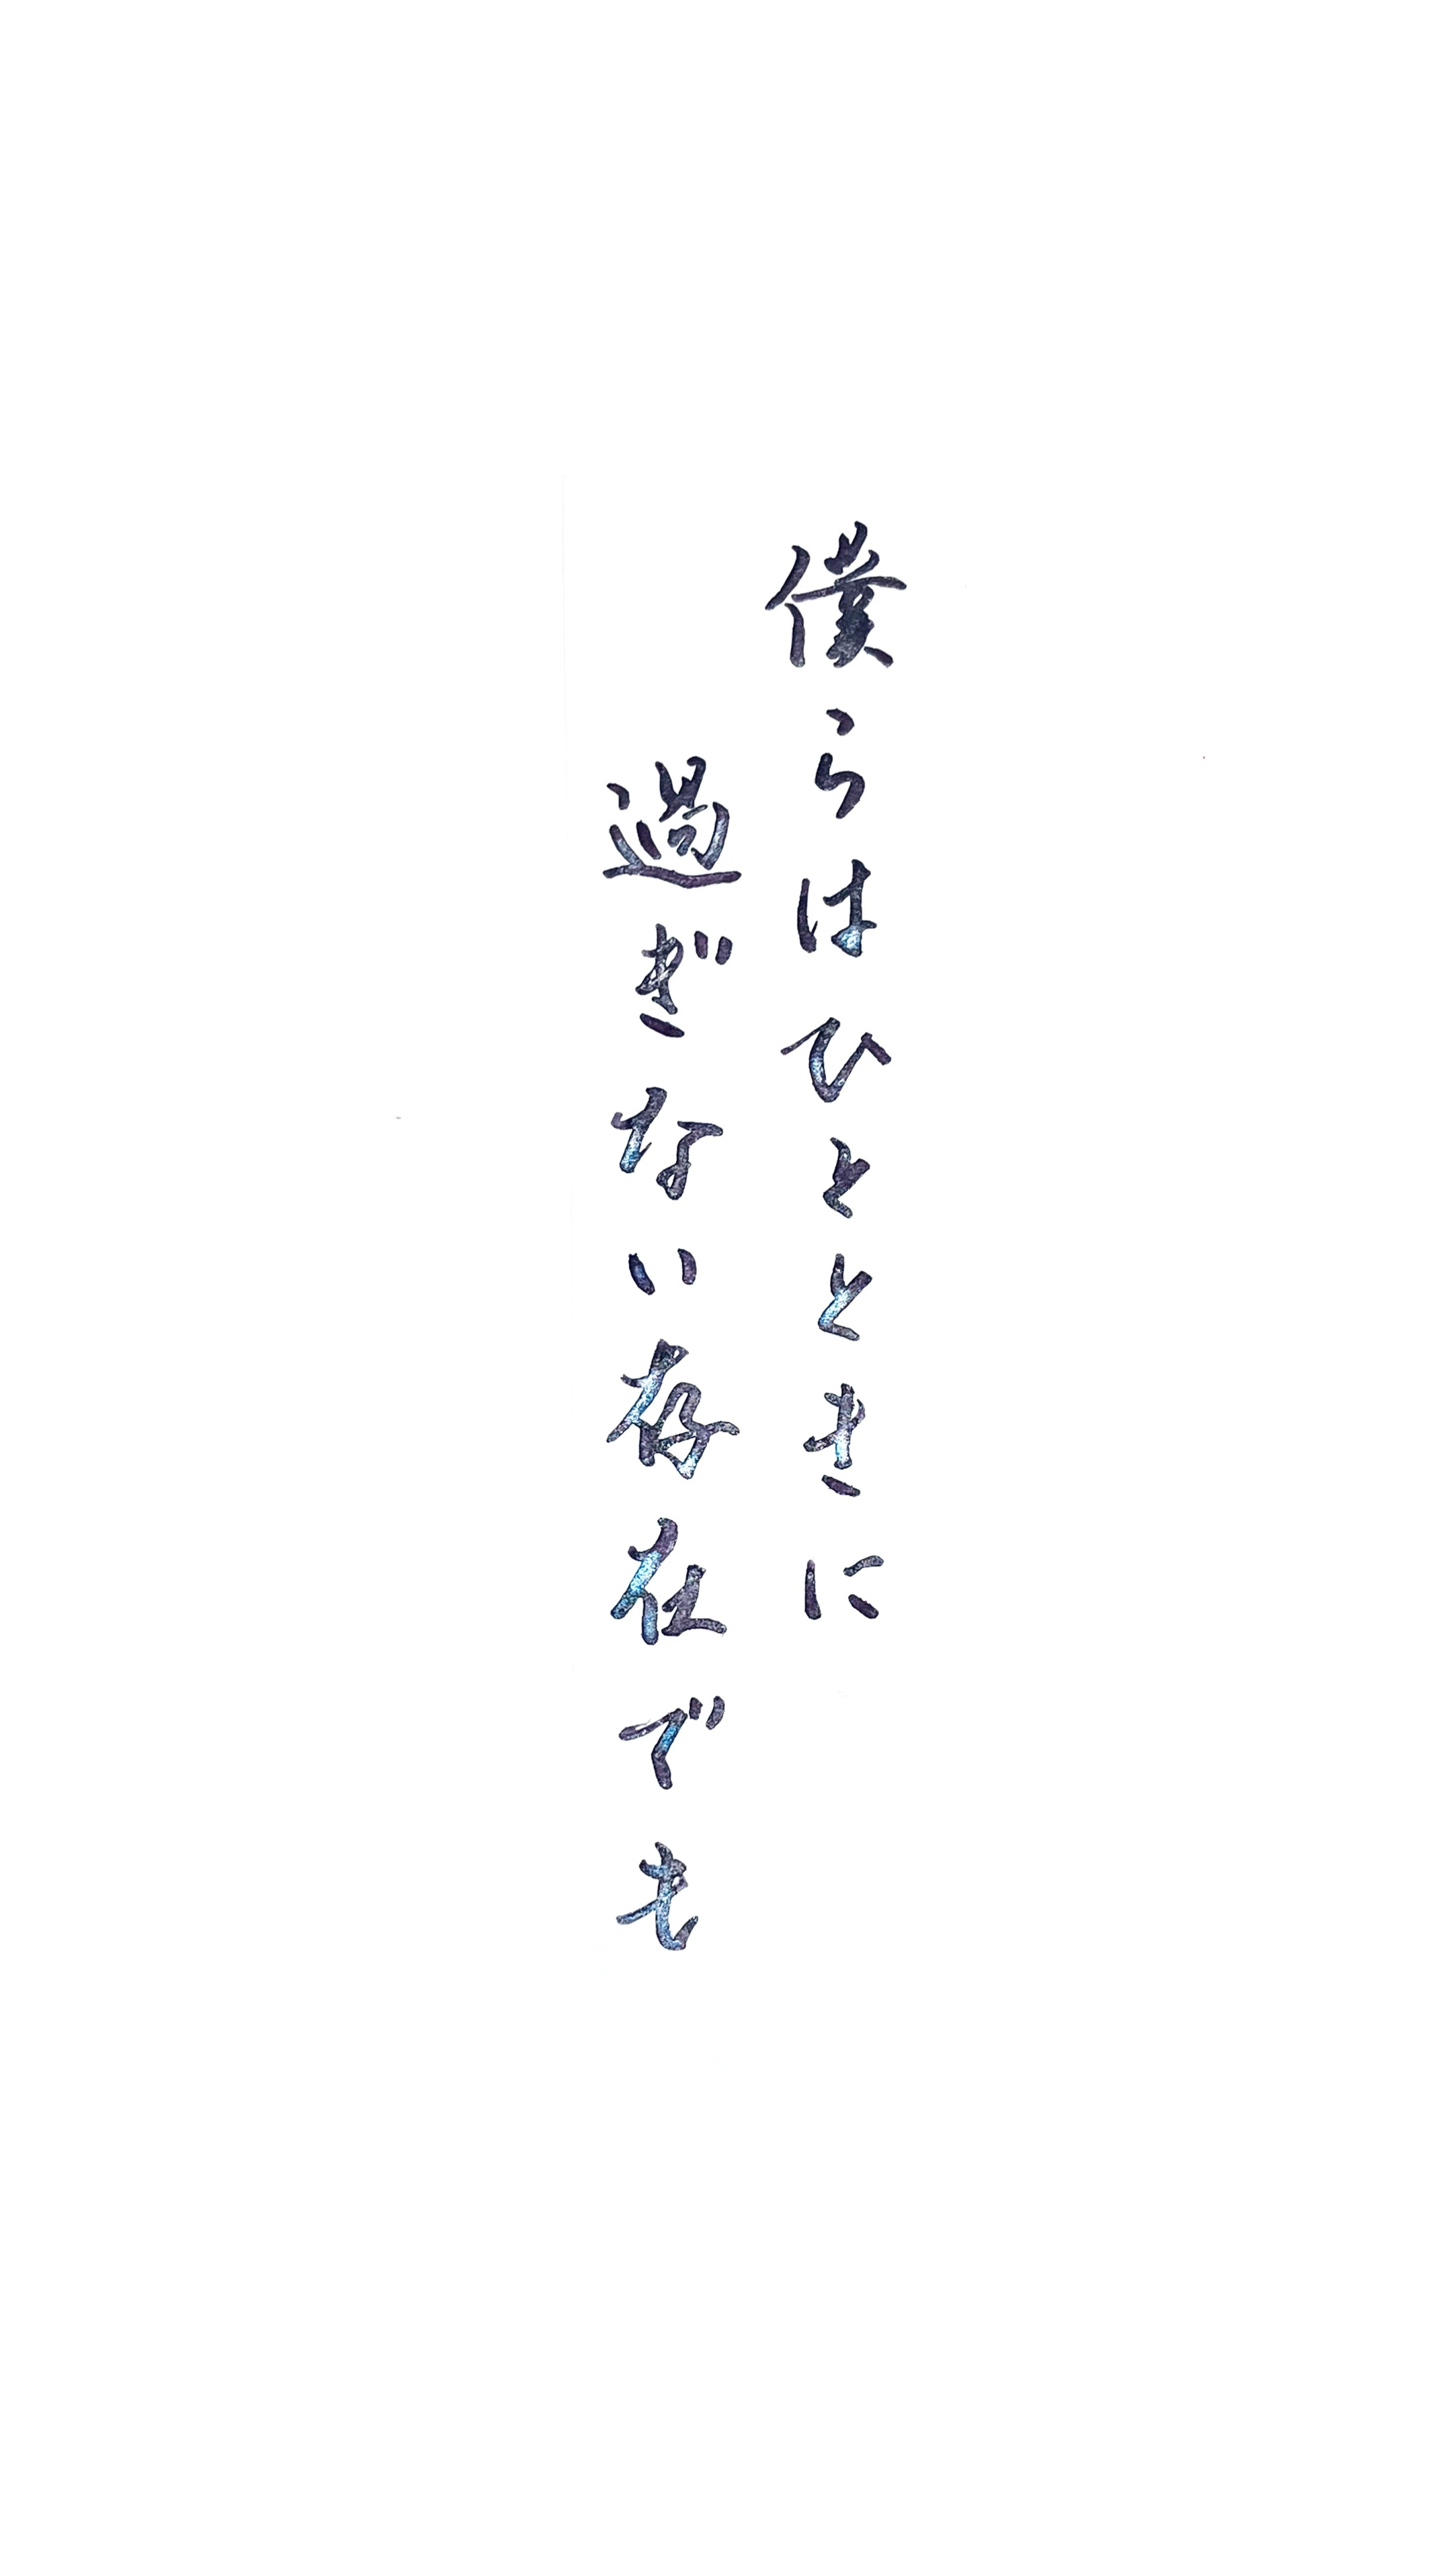 僕らはひとときに
過ぎない存在でも